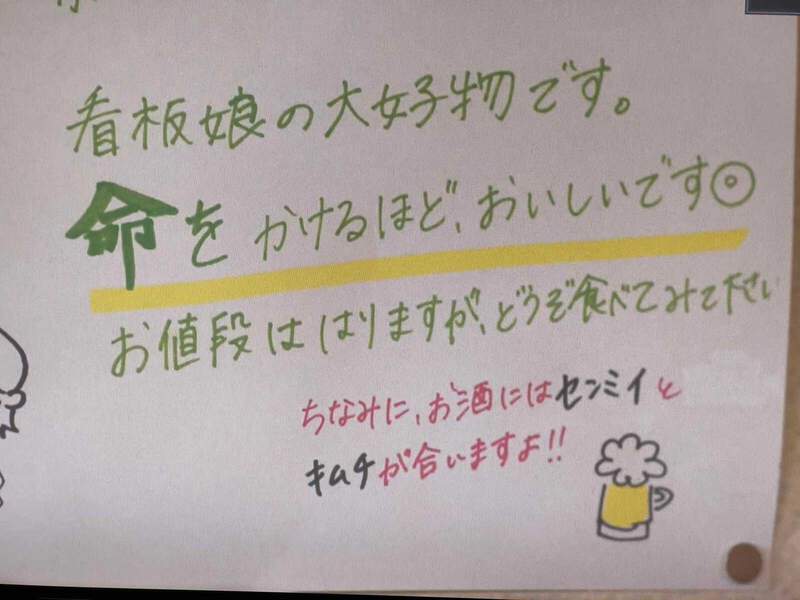 看板娘の大好物です。
命をかけるほど、おいしいです◎
お値段ははりますが、どうぞ食べてみて下さい
ちなみに、お酒にはセンミイと
キムチが合いますよ!!